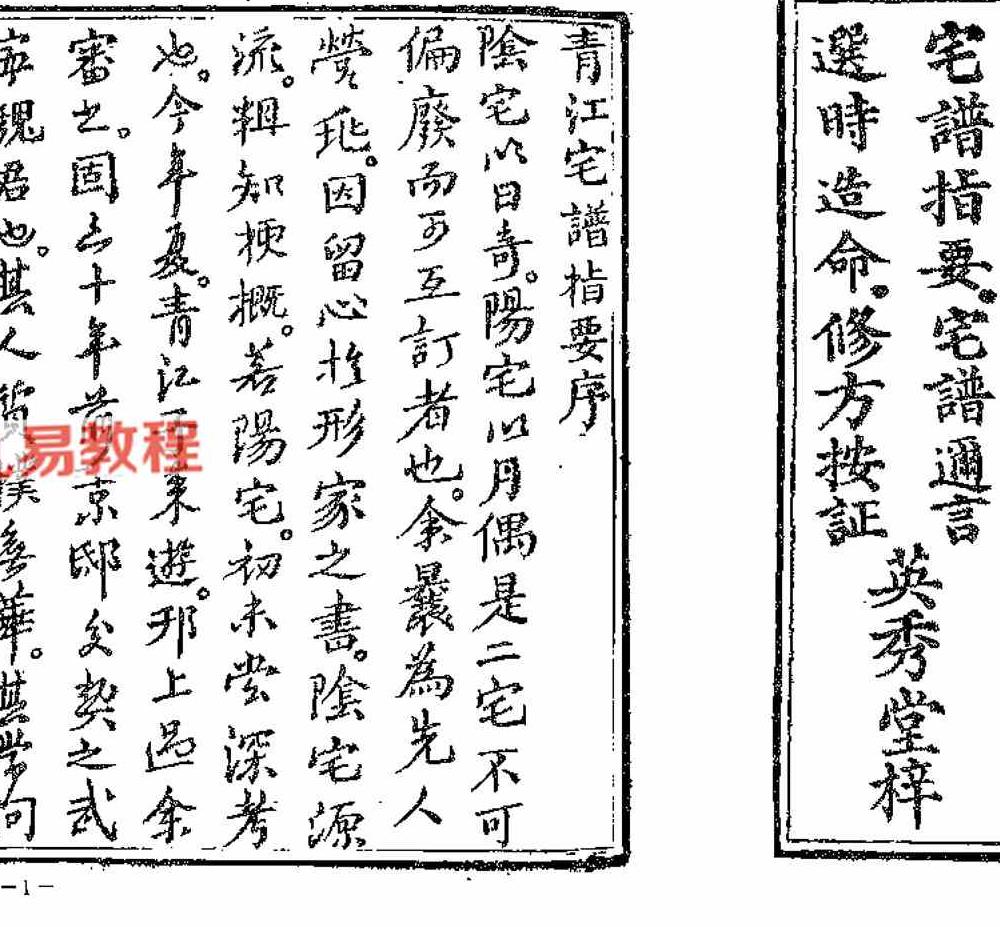 宅譜指要。宅譜邇言
選時造命。修方按証
英秀堂梓
青江宅譜指要序
陰宅以日奇。陽宅以月偶是二宅不可
偏廢而可互訂者也。余曩為先人
營兆。因留心於形家之書。陰宅源
流。輯知梗概。若陽宅。初未嘗深考
也。今年夏。青江 來遊。邗上過余
審之。固三十年前京邸交契之武
寧魏君也。其人質樸無華。其學問
易教程
-1-